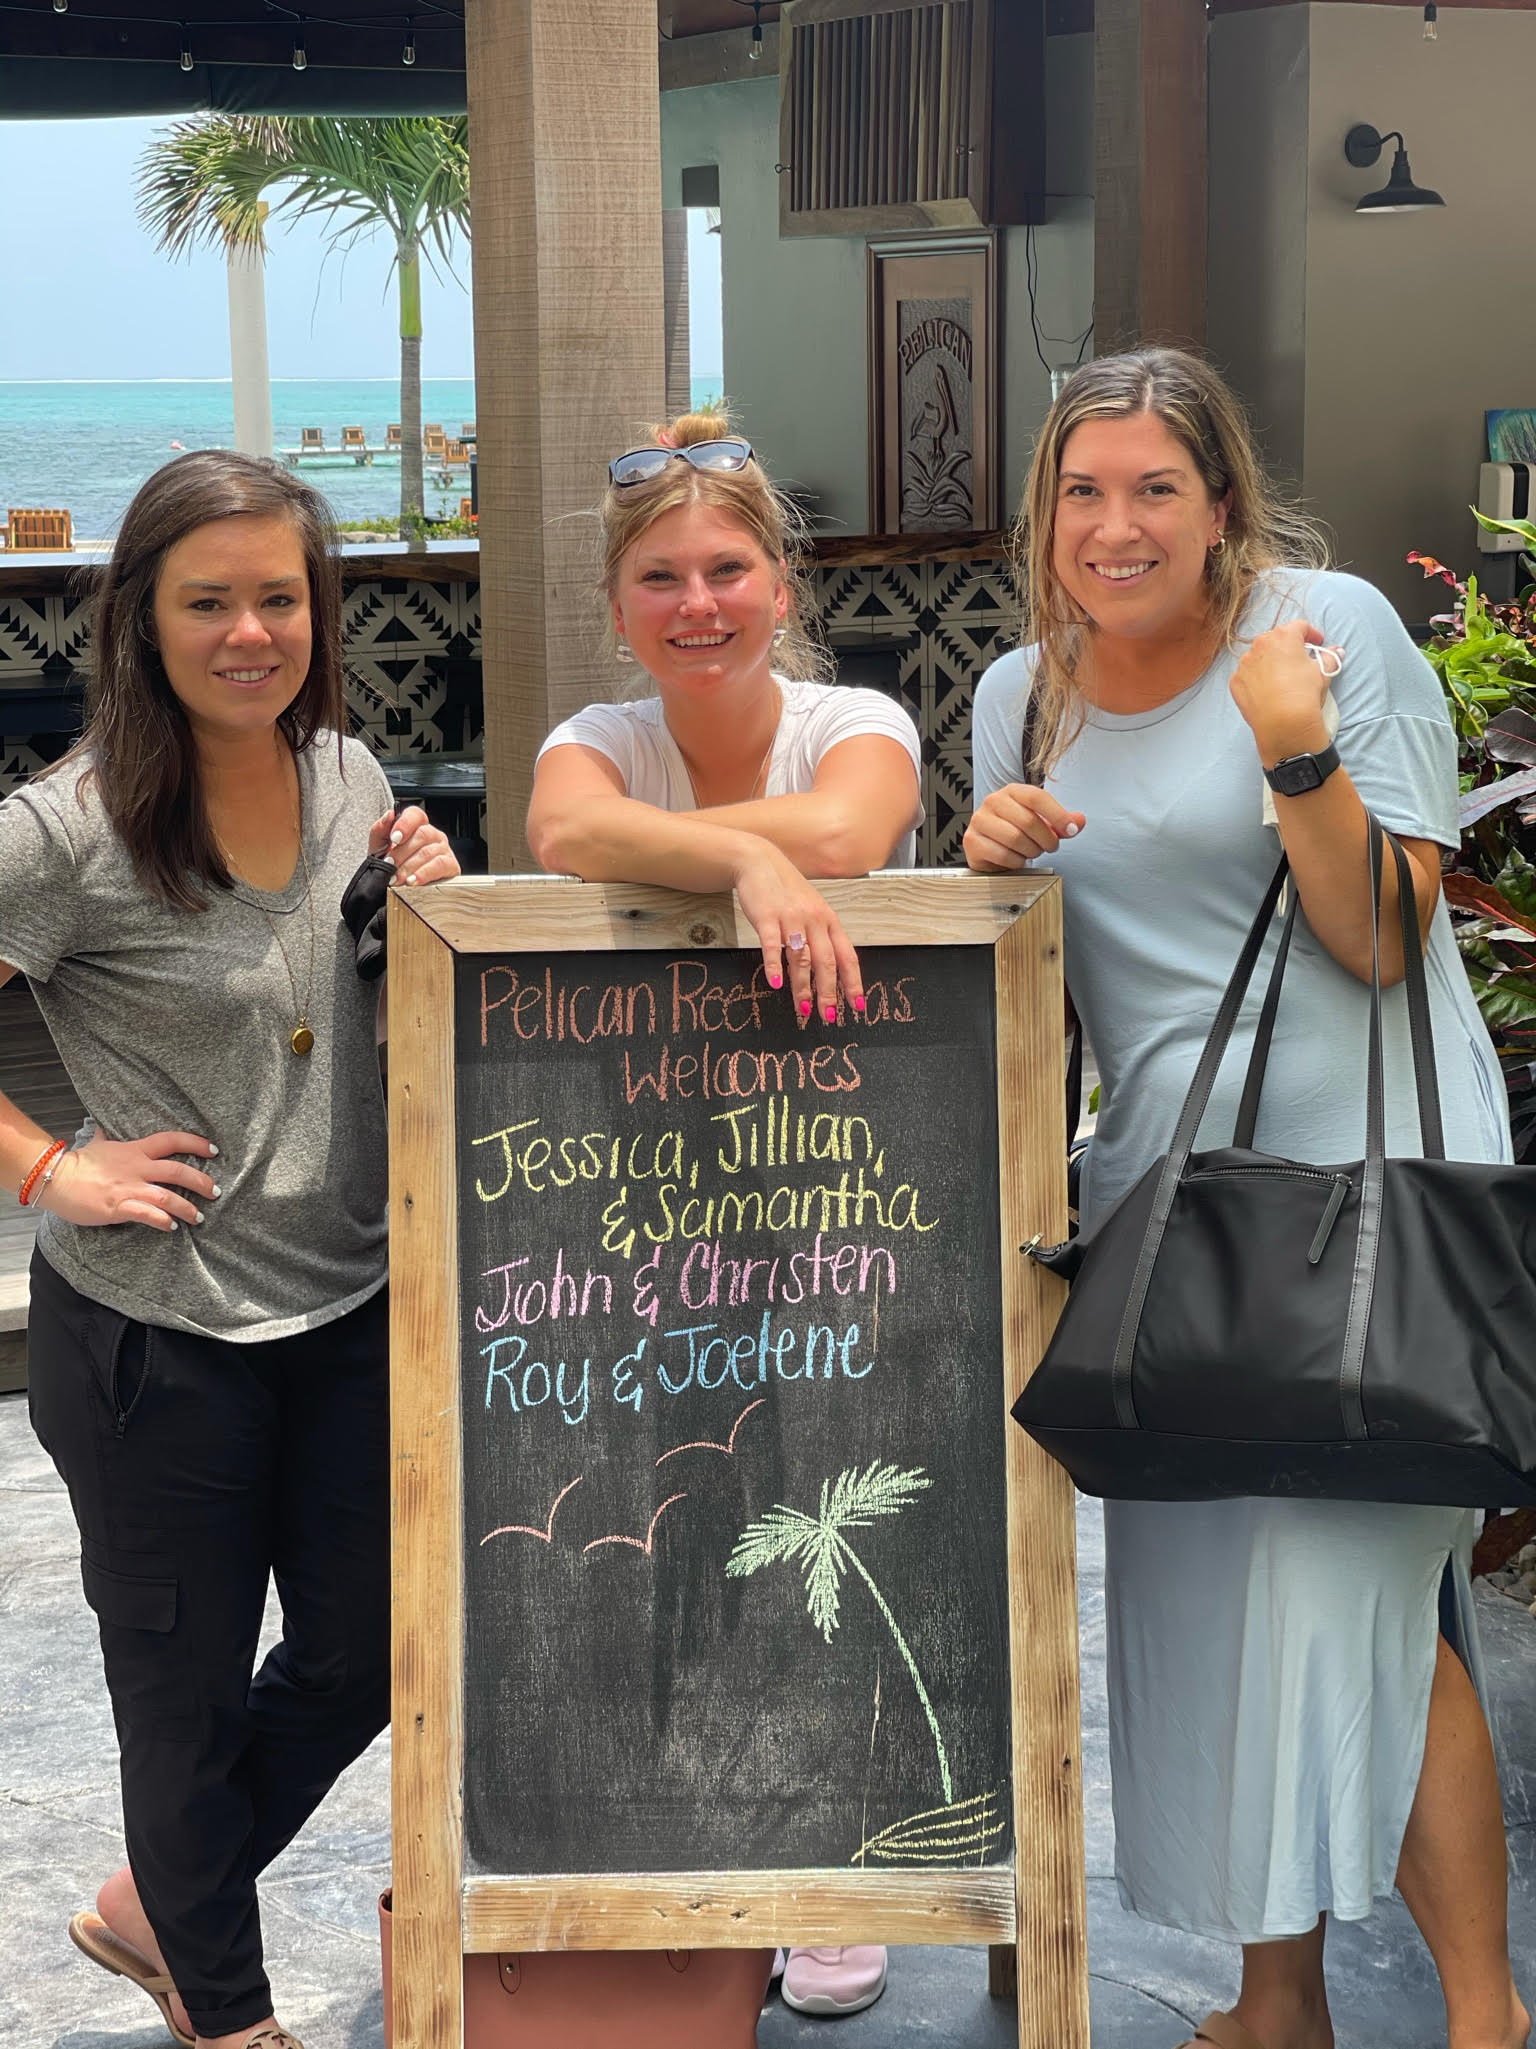 PELICAN
Pelican Reef Villas
Welcomes
Jessica, Jillian,
& Samantha
John & Christen
Roy & Joelene